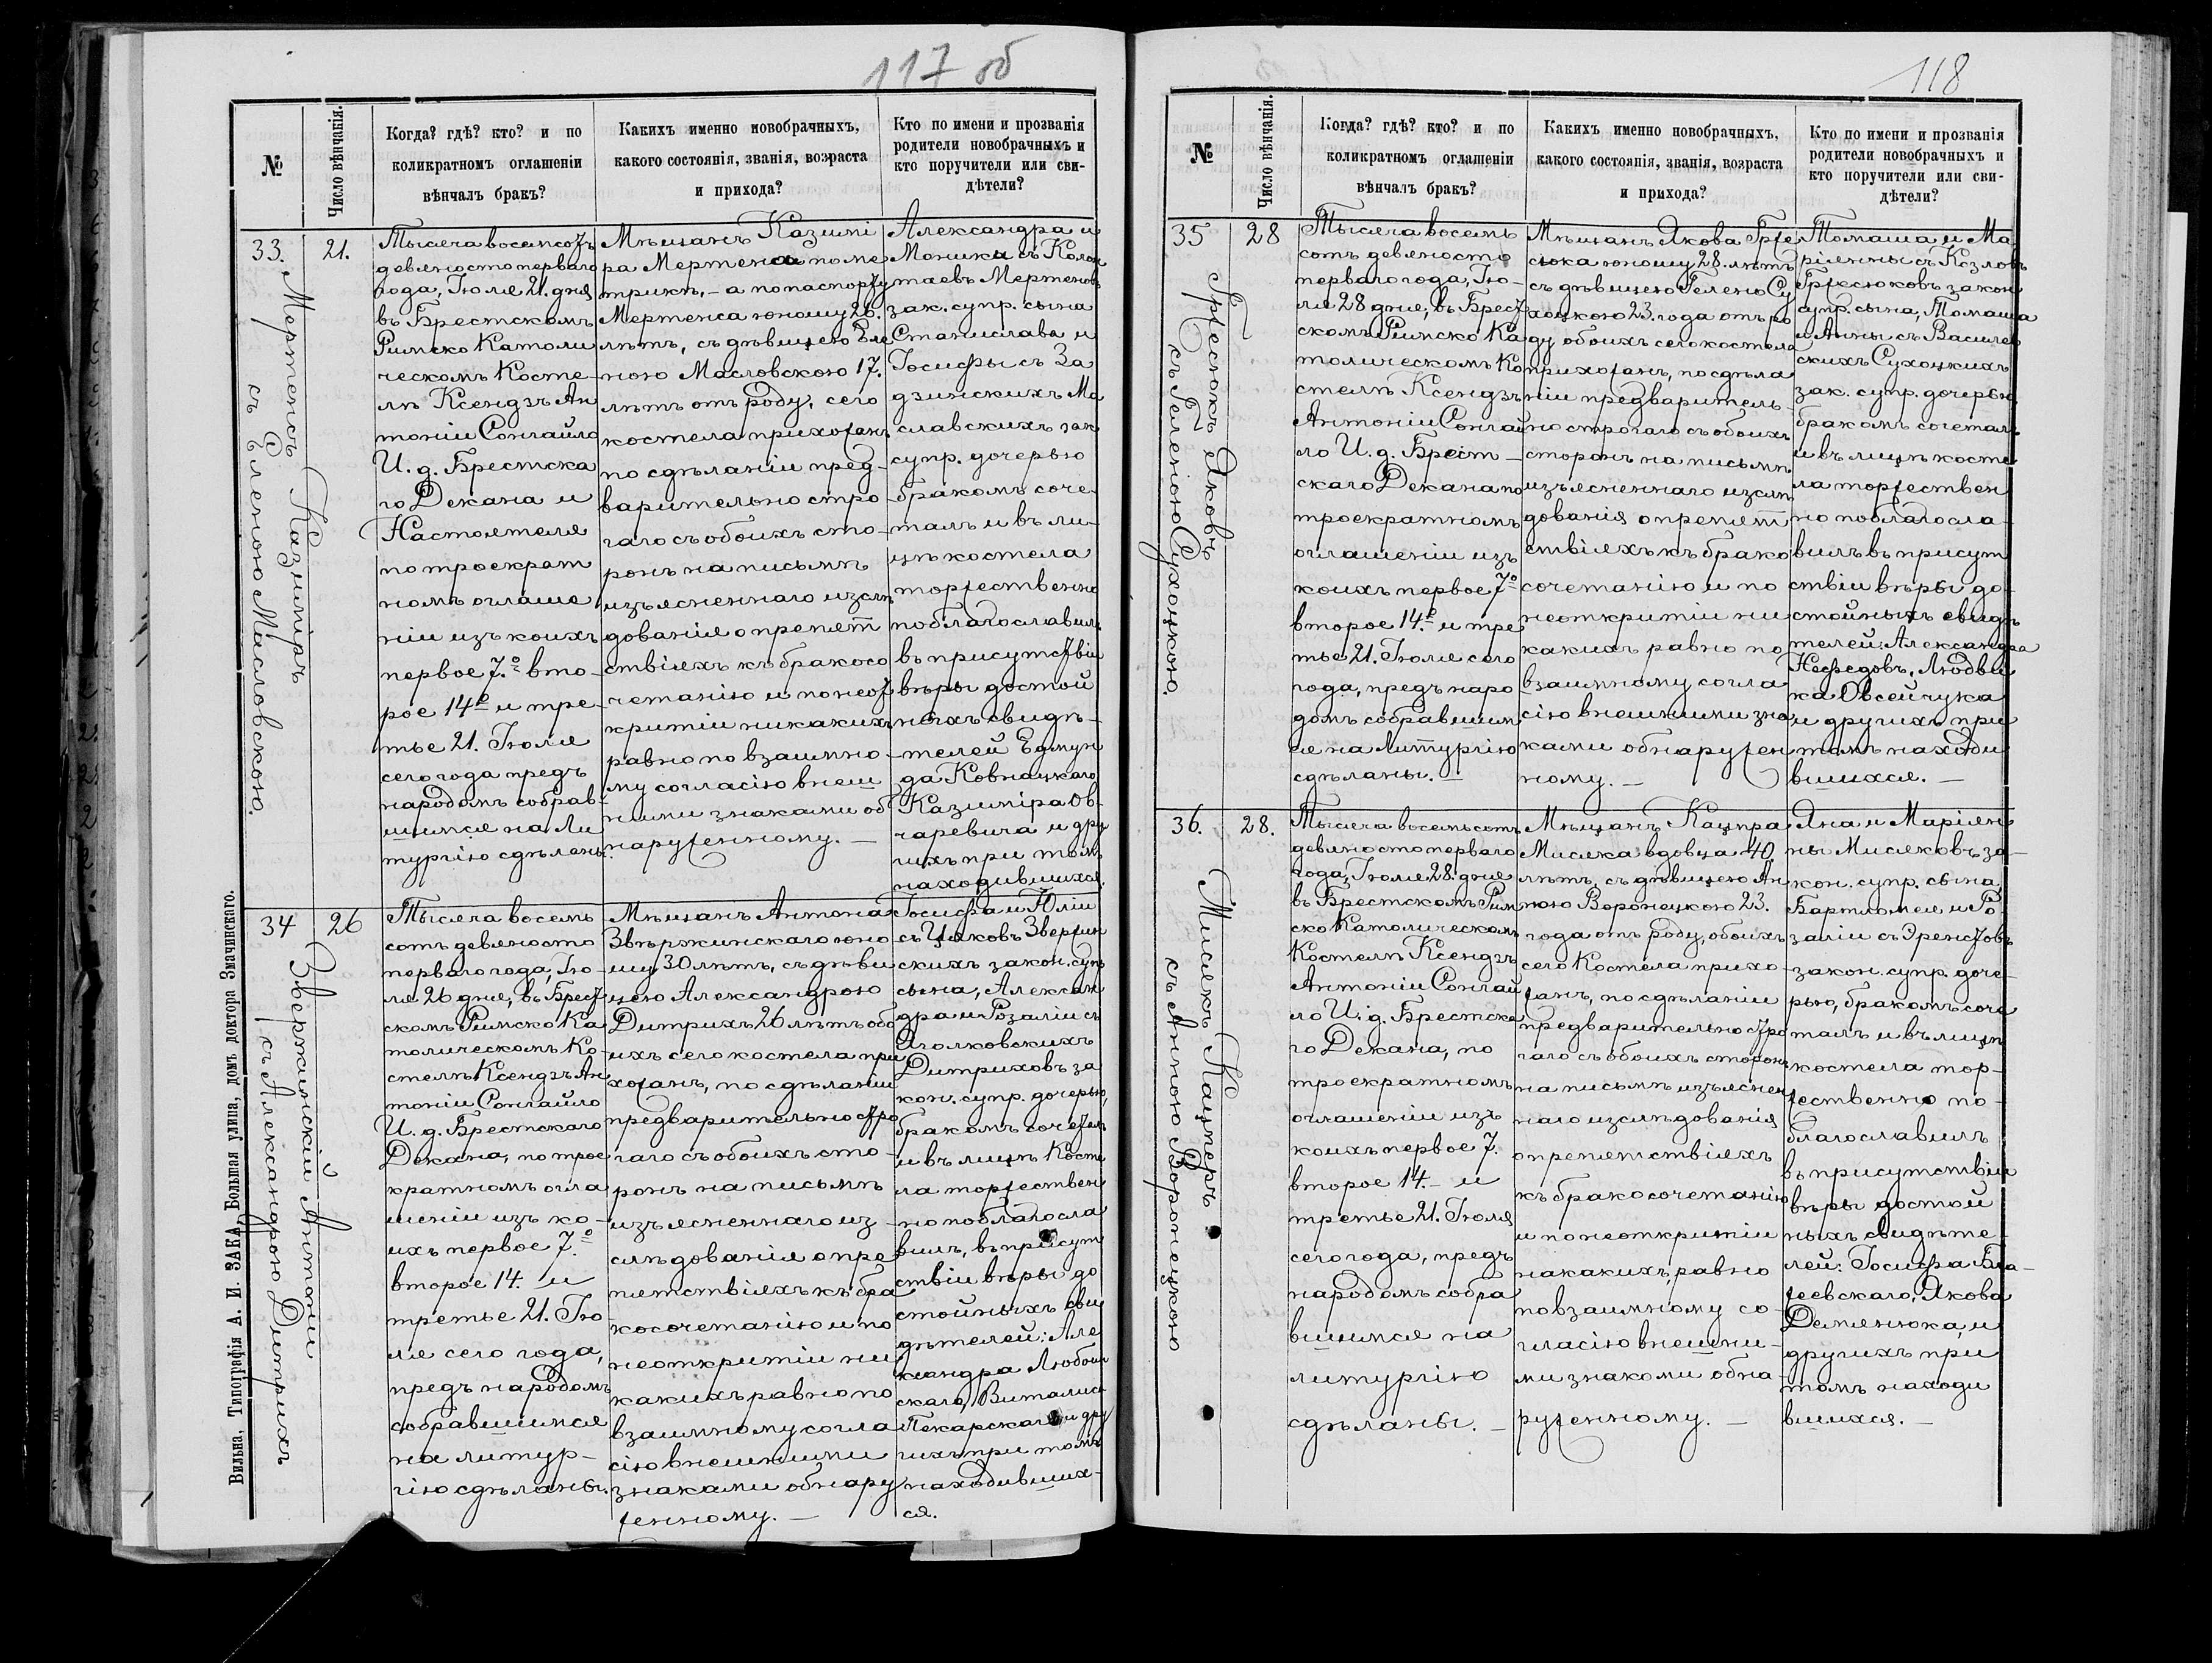 117 об
№
Число вѣнчанія.
Когда? гдѣ? кто? и по
коликратномъ оглашеніи
вѣнчалъ бракъ?
Какихъ именно новобрачныхъ,
какого состоянія, званія, возраста
и прихода?
Кто по имени и прозванія
родители новобрачныхъ и
кто поручители или сви-
дѣтели?
33.
Мертенсъ Казиміръ
съ Еленою Масловскою.
21.
Тысяча восемсотъ
девяносто перваго
года, Іюля 21. дня
въ Брестскомъ
Римско Католи
ческомъ Косте-
лѣ Ксендзъ Ан
тоніи Сонгайло
И. д. Брестска
го Декана и
Настоятеля
по троекрат
номъ оглаше
ніи изъ коихъ
первое 7.º вто-
рое 14е и тре-
тье 21. Іюля
сего года предъ
народомъ собрав-
шимся на Ли
тургію сдѣланы.
Мѣщанъ Казимі
ра Мертена по ме
трикѣ, - а по паспорту
Мертенса юношу 26.
лѣтъ, съ дѣвицею Еле
ною Масловскою 17.
лѣтъ отъ роду, сего
костела прихожанъ
по сдѣланіи пред-
варительно стро
гаго съ обоихъ сто-
ронъ на письмѣ
изъясненнаго изслѣ
дованія о препят
ствіяхъ къ бракосо
четанію и по неот
критіи никакихъ
равно по взаимно-
му согласію внѣш
ними знаками об
наруженному. —
Александра и
Моники съ Колон
таевъ Мертеновъ
зак. супр. сына
Станислава и
Іосифы съ За
дзинскихъ Ма
славскихъ зак
супр. дочерью
бракомъ соче-
талъ и въ ли-
цѣ костела
торжественно
поблагославилъ
въ присутствіи
вѣры достой
ныхъ свидѣ-
телей Едмун
да Ковнацкаго
Казиміра Ов-
чаревича и дру
гихъ при томъ
находившихся.
34
Звержинскій Антоній
съ Александрою Дитрихъ
26
Тысяча восемь
сотъ девяносто
перваго года, Ію-
ля 26 дня, въ Брест
скомъ Римско Ка
толическомъ Ко-
стелѣ Ксендзъ Ан
тоніи Сонгайло
И. д. Брестскаго
Декана, по трое
кратномъ огла
шеніи изъ ко-
ихъ первое 7.º
второе 14. и
третье 21. Ію
ля сего года,
предъ народомъ
собравшимся
на литур-
гію сдѣланы.
Мѣщанъ Антона
Звѣржинскаго юно
шу 30 лѣтъ, съ дѣви
цею Александрою
Дитрихъ 26 лѣтъ обо
ихъ сего костела при
хожанъ, по сдѣланіи
предварительно стро
гаго съ обоихъ сто-
ронъ на письмѣ
изъясненнаго из-
слѣдованія о пре
пятствіяхъ къ бра
косочетанію и по
неоткритіи ни
какихъ равно по
взаимному согла
сію внѣшними
знаками обнару
женному. —
Іосифа и Юліи
съ Цаковъ Звержин
скихъ закон. супр
сына, Алексан
дра и Розаліи съ
Яголковскихъ
Дитриховъ за
кон. супр. дочерью,
бракомъ сочеталъ
и въ лицѣ Косте
ла торжествен
но поблагосла
вилъ, въ присут
ствіи вѣры до
стойныхъ сви
дѣтелей: Але
ксандра Любош
скаго, Виталиса
Пекарскаго и дру
гихъ при томъ
находивших-
ся.
Вильна, Типографія А. И. ЗАКА, Большая улица, домъ доктора Змачинскаго.
118
№
Число вѣнчанія.
Когда? гдѣ? кто? и по
коликратномъ оглашеніи
вѣнчалъ бракъ?
Какихъ именно новобрачныхъ,
какого состоянія, званія, возраста
и прихода?
Кто по имени и прозванія
родители новобрачныхъ и
кто поручители или сви-
дѣтели?
35
Гржесюкъ Яковъ
съ Геленою Сухоцкою.
28
Тысяча восемь
сотъ девяносто
перваго года, Ію-
ля 28 дня, въ Брест
скомъ Римско Ка
толическомъ Ко
стелѣ Ксендзъ
Антоніи Сонгай
ло И. д. Брест-
скаго Декана по
троекратномъ
оглашеніи изъ
коихъ первое 7º
второе 14.е и тре
тье 21. Іюля сего
года, предъ наро
домъ собравшим
ся на Литургію
сдѣланы. —
Мѣщанъ Якова Грже
сюка юношу 28. лѣтъ
съ дѣвицею Геленою Су
хоцкою 23. года отъ ро
ду обоихъ сего костела
прихожанъ, по сдѣла
ніи предваритель-
но строгаго съ обоихъ
сторонъ на письмѣ
изъясненнаго изслѣ
дованія о препят
ствіяхъ къ брако
сочетанію и по
неоткритіи ни
какихъ равно по
взаимному согла
сію внешними зна
ками обнаружен
ному. —
Томаша и Ма
ріянны съ Козловъ
Гржесюковъ закон
супр. сына, Томаша
и Анны съ Василев
скихъ Сухоцкихъ
зак. супр. дочерью
бракомъ сочеталъ
и въ лицѣ косте
ла торжествен
но поблагосла-
вилъ въ присут
ствіи вѣры до-
стойныхъ свидѣ
телей: Александра
Нефедовъ, Людви
ка Овсейчука
и другихъ при
томъ находи
вшихся. —
36.
Мисякъ Кацперъ
съ Анною Воронецкою
28.
Тысяча восемьсотъ
девяносто перваго
года, Іюля 28. дня
въ Брестскомъ Рим
ско Католическомъ
Костелѣ Ксендзъ
Антоніи Сонгай
ло И. д. Брестска
го Декана, по
троекратномъ
оглашеніи изъ
коихъ первое 7.
второе 14. - и
третье 21. Іюля
сего года, предъ
народомъ собра
вшимся на
литургію
сдѣланы. —
Мѣщанъ Кацпра
Мисяка вдовца 40.
лѣтъ, съ дѣвицею Ан
ною Воронецкою 23.
года отъ роду, обоихъ
сего Костела прихо-
жанъ, по сдѣланіи
предварительно стро
гаго съ обоихъ сторонъ
на письмѣ изъяснен
наго изслѣдованія
о препятствіяхъ
къ бракосочетанію
и по неоткритіи
накакихъ, равно
по взаимному со-
гласію внешни-
ми знакоми обна-
руженному. —
Яна и Маріян
ны Мисяковъ за-
кон. супр. сына,
Бартломея и Ро-
заліи съ Эренстовъ
закон. супр. доче-
рью, бракомъ соче
талъ и въ лицѣ
костела тор-
жественно по-
благославилъ
въ присутствіи
вѣры достой
ныхъ свидѣте
лей: Іосифа Бла-
жеевскаго, Якова
Демянюка, и
другихъ при
томъ находи
вшихся. —